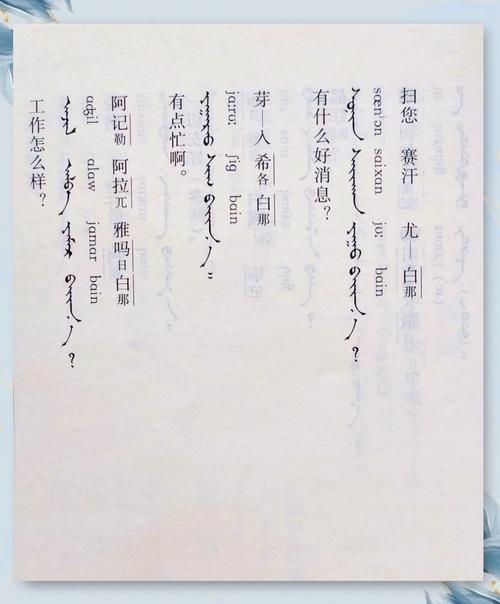 扫您 赛汗 尤— 白那
sœnʲɔn saixan juː bain
ᠰᠣᠨᠢᠨ ᠰᠠᠶᠢᠬᠠᠨ ᠶᠠᠭᠤ ᠪᠠᠶᠢᠨ᠎ᠠ ?
有什么好消息？
芽—入 希各 白那
jaːrʊː ʃig bain
ᠶᠠᠭᠠᠷᠠᠤ ᠰᠢᠭ ᠪᠠᠶᠢᠨ᠎ᠠ ᠃
有点忙啊。
阿记勒 阿拉兀 雅吗日白那
aʤil alaw jamar bain
ᠠᠵᠢᠯ ᠠᠯᠪᠠ ᠶᠠᠮᠠᠷ ᠪᠠᠶᠢᠨ᠎ᠠ ?
工作怎么样？